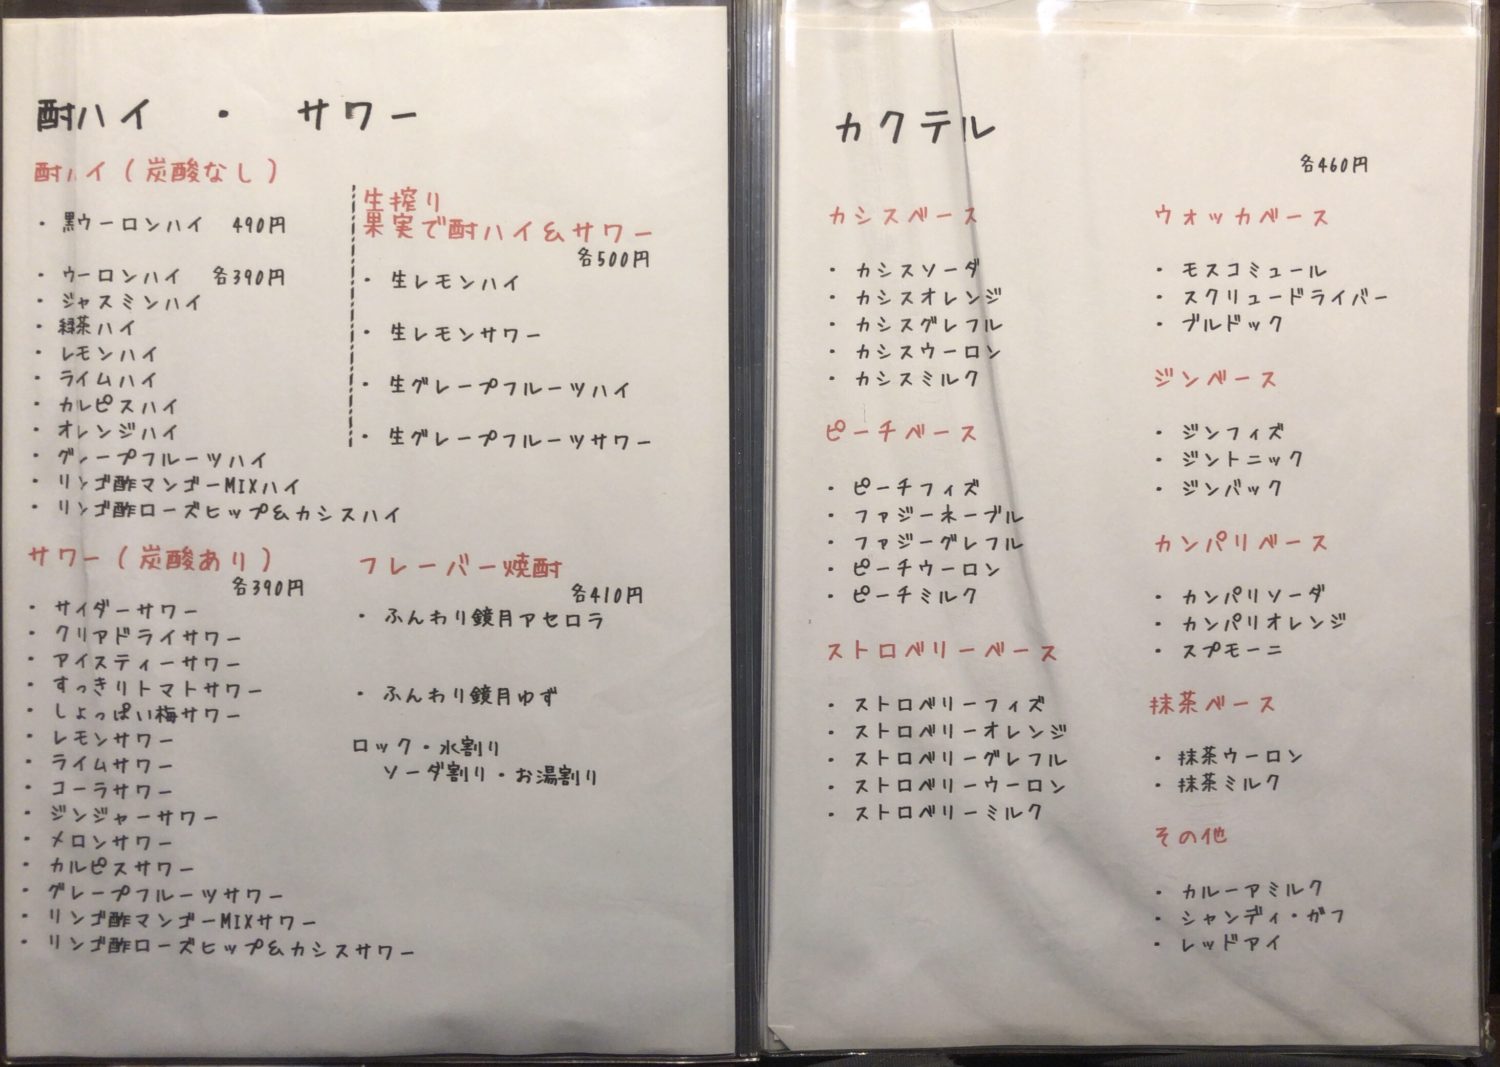 酎ハイ ・ サワー
酎ハイ(炭酸なし)
・ 黒ウーロンハイ 490円
・ ウーロンハイ 各390円
・ ジャスミンハイ
・ 緑茶ハイ
・ レモンハイ
・ ライムハイ
・ カルピスハイ
・ オレンジハイ
・ グレープフルーツハイ
・ リンゴ酢マンゴーMIXハイ
・ リンゴ酢ローズヒップ&カシスハイ
生搾り
果実で酎ハイ&サワー
各500円
・ 生レモンハイ
・ 生レモンサワー
・ 生グレープフルーツハイ
・ 生グレープフルーツサワー
サワー(炭酸あり)
各390円
・ サイダーサワー
・ クリアドライサワー
・ アイスティーサワー
・ すっきりトマトサワー
・ しょっぱい梅サワー
・ レモンサワー
・ ライムサワー
・ コーラサワー
・ ジンジャーサワー
・ メロンサワー
・ カルピスサワー
・ グレープフルーツサワー
・ リンゴ酢マンゴーMIXサワー
・ リンゴ酢ローズヒップ&カシスサワー
フレーバー焼酎
各410円
・ ふんわり鏡月アセロラ
・ ふんわり鏡月ゆず
ロック・水割り
ソーダ割り・お湯割り
カクテル
各460円
カシスベース
・ カシスソーダ
・ カシスオレンジ
・ カシスグレフル
・ カシスウーロン
・ カシスミルク
ピーチベース
・ ピーチフィズ
・ ファジーネーブル
・ ファジーグレフル
・ ピーチウーロン
・ ピーチミルク
ストロベリーベース
・ ストロベリーフィズ
・ ストロベリーオレンジ
・ ストロベリーグレフル
・ ストロベリーウーロン
・ ストロベリーミルク
ウォッカベース
・ モスコミュール
・ スクリュードライバー
・ ブルドック
ジンベース
・ ジンフィズ
・ ジントニック
・ ジンバック
カンパリベース
・ カンパリソーダ
・ カンパリオレンジ
・ スプモーニ
抹茶ベース
・ 抹茶ウーロン
・ 抹茶ミルク
その他
・ カルーアミルク
・ シャンディ・ガフ
・ レッドアイ